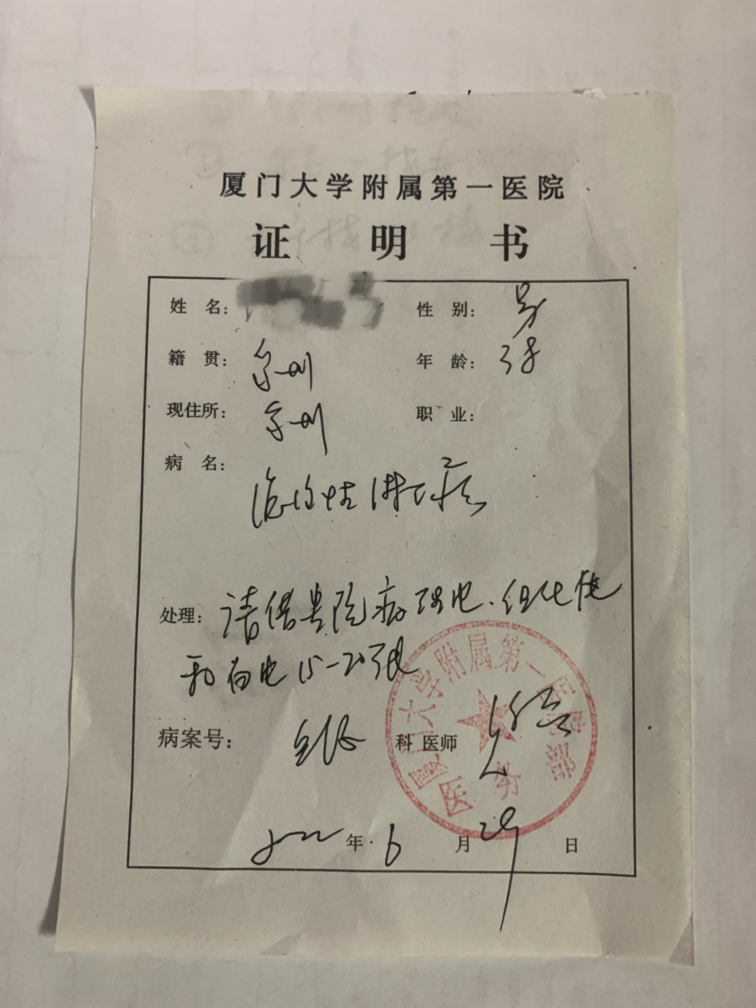 厦门大学附属第一医院
证明书
姓名: 性别: 男
籍贯: 泉州 年龄:
现住所: 泉州 职业:
病名:
恶性淋巴瘤
处理: 请借贵院病理片、组化片
和白片15-20张
病案号: 科 医师
2022年6月29日
厦门大学附属第一医院
医务部